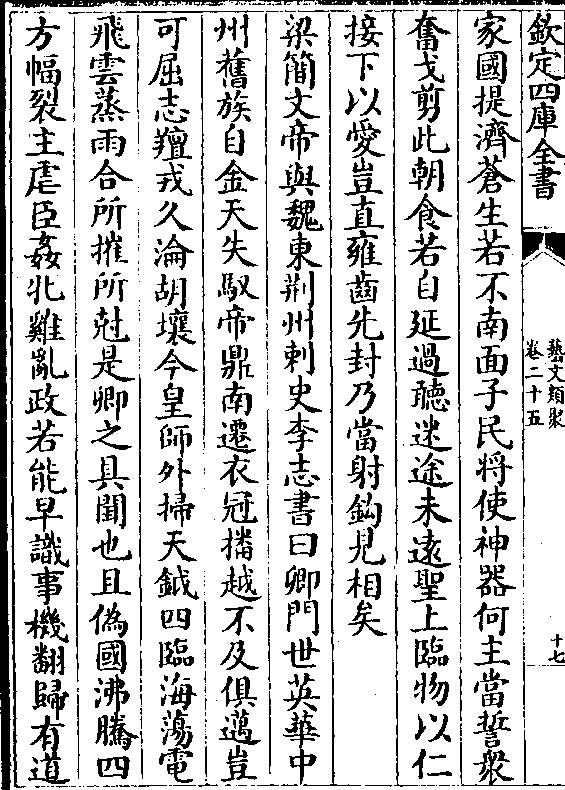 欽定四庫全書
藝文類聚
卷二十五
十七
家國提濟蒼生若不南面子民將使神器何主當誓衆
奮戈剪此朝食若自延過聽迷途未遠聖上臨物以仁
接下以愛豈直雍齒先封乃當射鈎見相矣
梁簡文帝與魏東荆州刺史李志書曰卿門世英華中
州舊族自金天失馭帝鼎南遷衣冠播越不及俱邁豈
可屈志羶戎久淪胡壤今皇師外掃天鉞四臨海蕩電
飛雲蒸雨合所摧所尅是卿之具聞也且偽國沸騰四
方幅裂主虐臣姦牝雞亂政若能早識事機翻歸有道